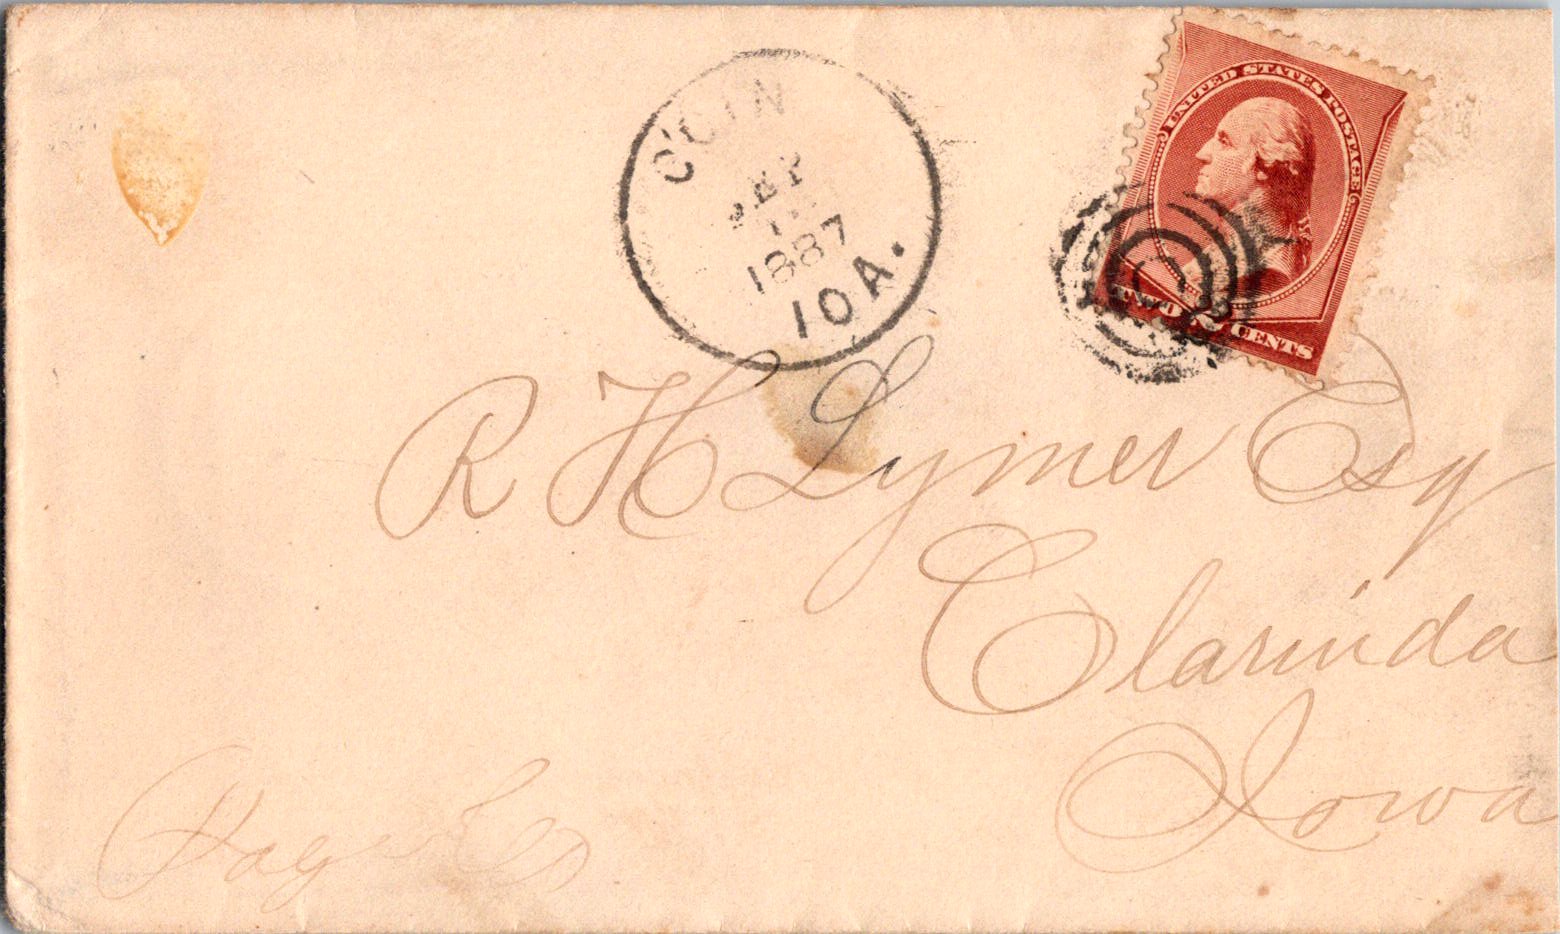 COIN
SEP
1887
IOA.
UNITED STATES POSTAGE
TWO CENTS
R H Lymer Esq
Clarinda
Iowa
Page Co